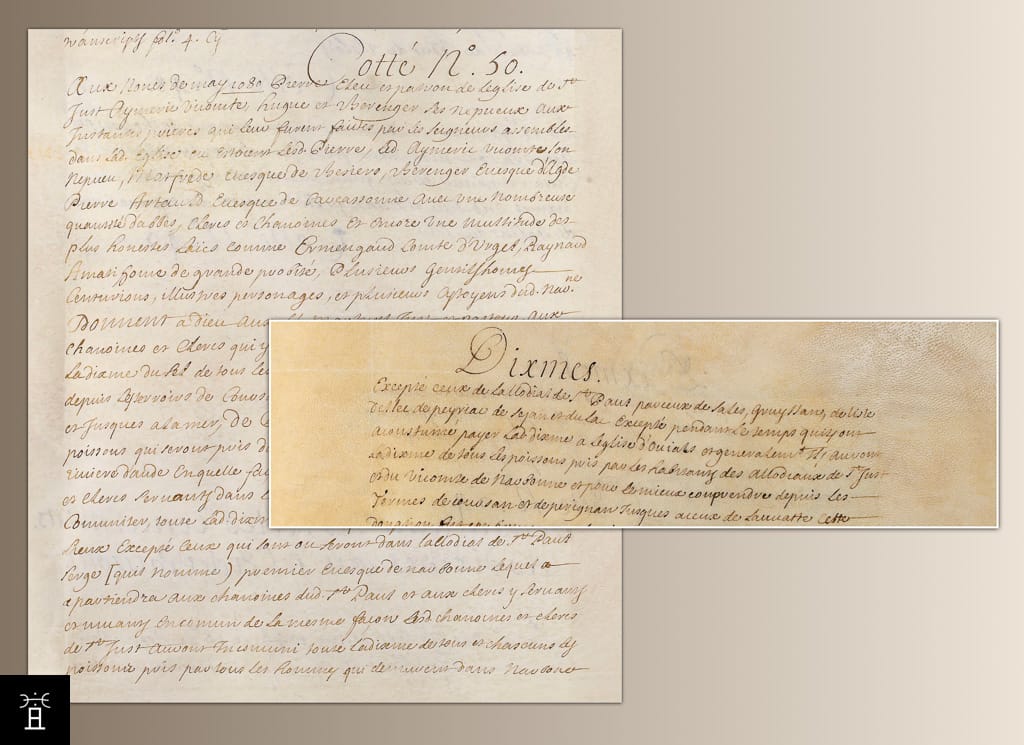 manuscripts fol. 4.
Cotté N.° 50.
Aux Nones de may 1080 Pierre Eleu et patron de leglise de S.t
Just Aymeric Vicomte, hugue et Berenger Ses Nepueux Aux
Instantes prieres qui leur furent faites par les seigneurs assembles
dans lad. Eglise ou Estoient lesd. Pierre, led. Aymeric vicomte son
Nepueu, Matfrede Euesque de Besiers, Berenger Euesque d'Agde
Pierre Artaud Euesque de Carcassonne Auec une Nombreuse
quantité d'abbés, Clercs et Chanoines Et Encore Une Multitude des
plus honestes Laics comme Ermengaud Comte d'Urgel, Raynaud
Amati home de grande probité, Plusieurs Gentilshomes
Centurions, illustres personages, et plusieurs Citoyens dud. Nar.ne
Donnent a dieu Aux
chanoines et Clercs qui y
La dixme du sel de tous les
depuis
et Jusques a la mer, de
poissons qui seront pris
riuiere daude En quelle
et Clercs Seruants dans
Comuniter, toute Lad. dixme
Reux Excepté Ceux qui sont ou seront dans lallodial de S.t Paul
Serge [quil Nomme) premier Euesque de narbonne Lequel
apartiendra aux chanoines dud. S.t Paul et aux clercs y Seruants
et viuants en comun de la mesme façon Lesd. chanoines et clercs
de S.t Just Auront In comuni toute la dixme de tous et chascuns les
poissons pris par tous les hommes qui demeurent dans Narbone
Dixmes.
Excepté ceux de Lallodial de S.t Paul par ceux de Sales, Gruyssan, de
de peyriac de sejan et du La Excepté pendant Le temps quils ont
acoustumé payer Lad. dixme a leglise d'Ouials et generalem.t Ils auront
la dixme de tous les poissons pris par les habitans des Allodiaux de S.t Just
et du Vicomte de Narbonne et pour le mieux comprendre depuis les
Termes de et de perignan Jusques a ceux de Cette